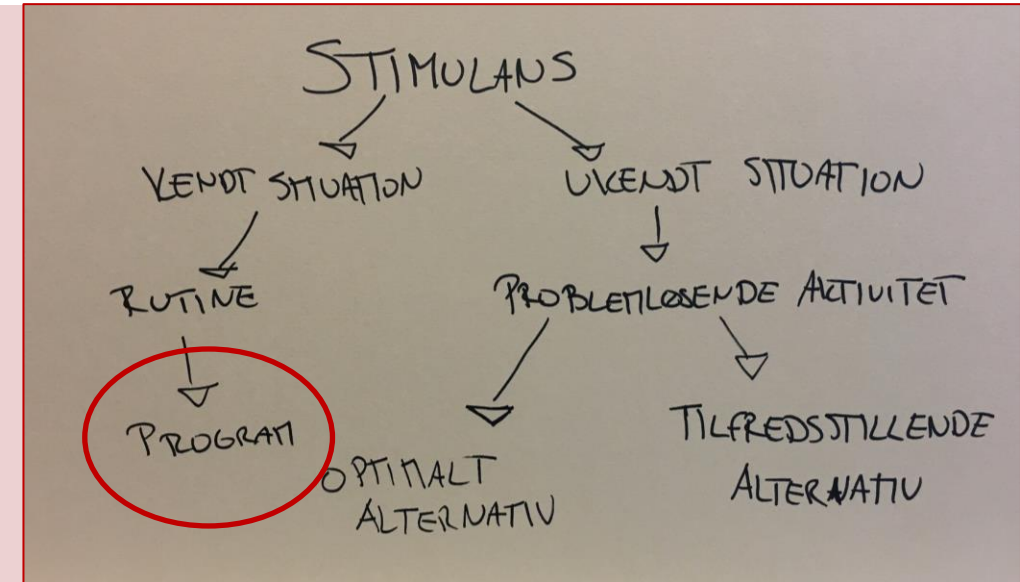 STIMULANS
KENDT SITUATION
UKENDT SITUATION
RUTINE
PROBLEMLØSENDE AKTIVITET
PROGRAM
OPTIMALT
ALTERNATIV
TILFREDSSTILLENDE
ALTERNATIV